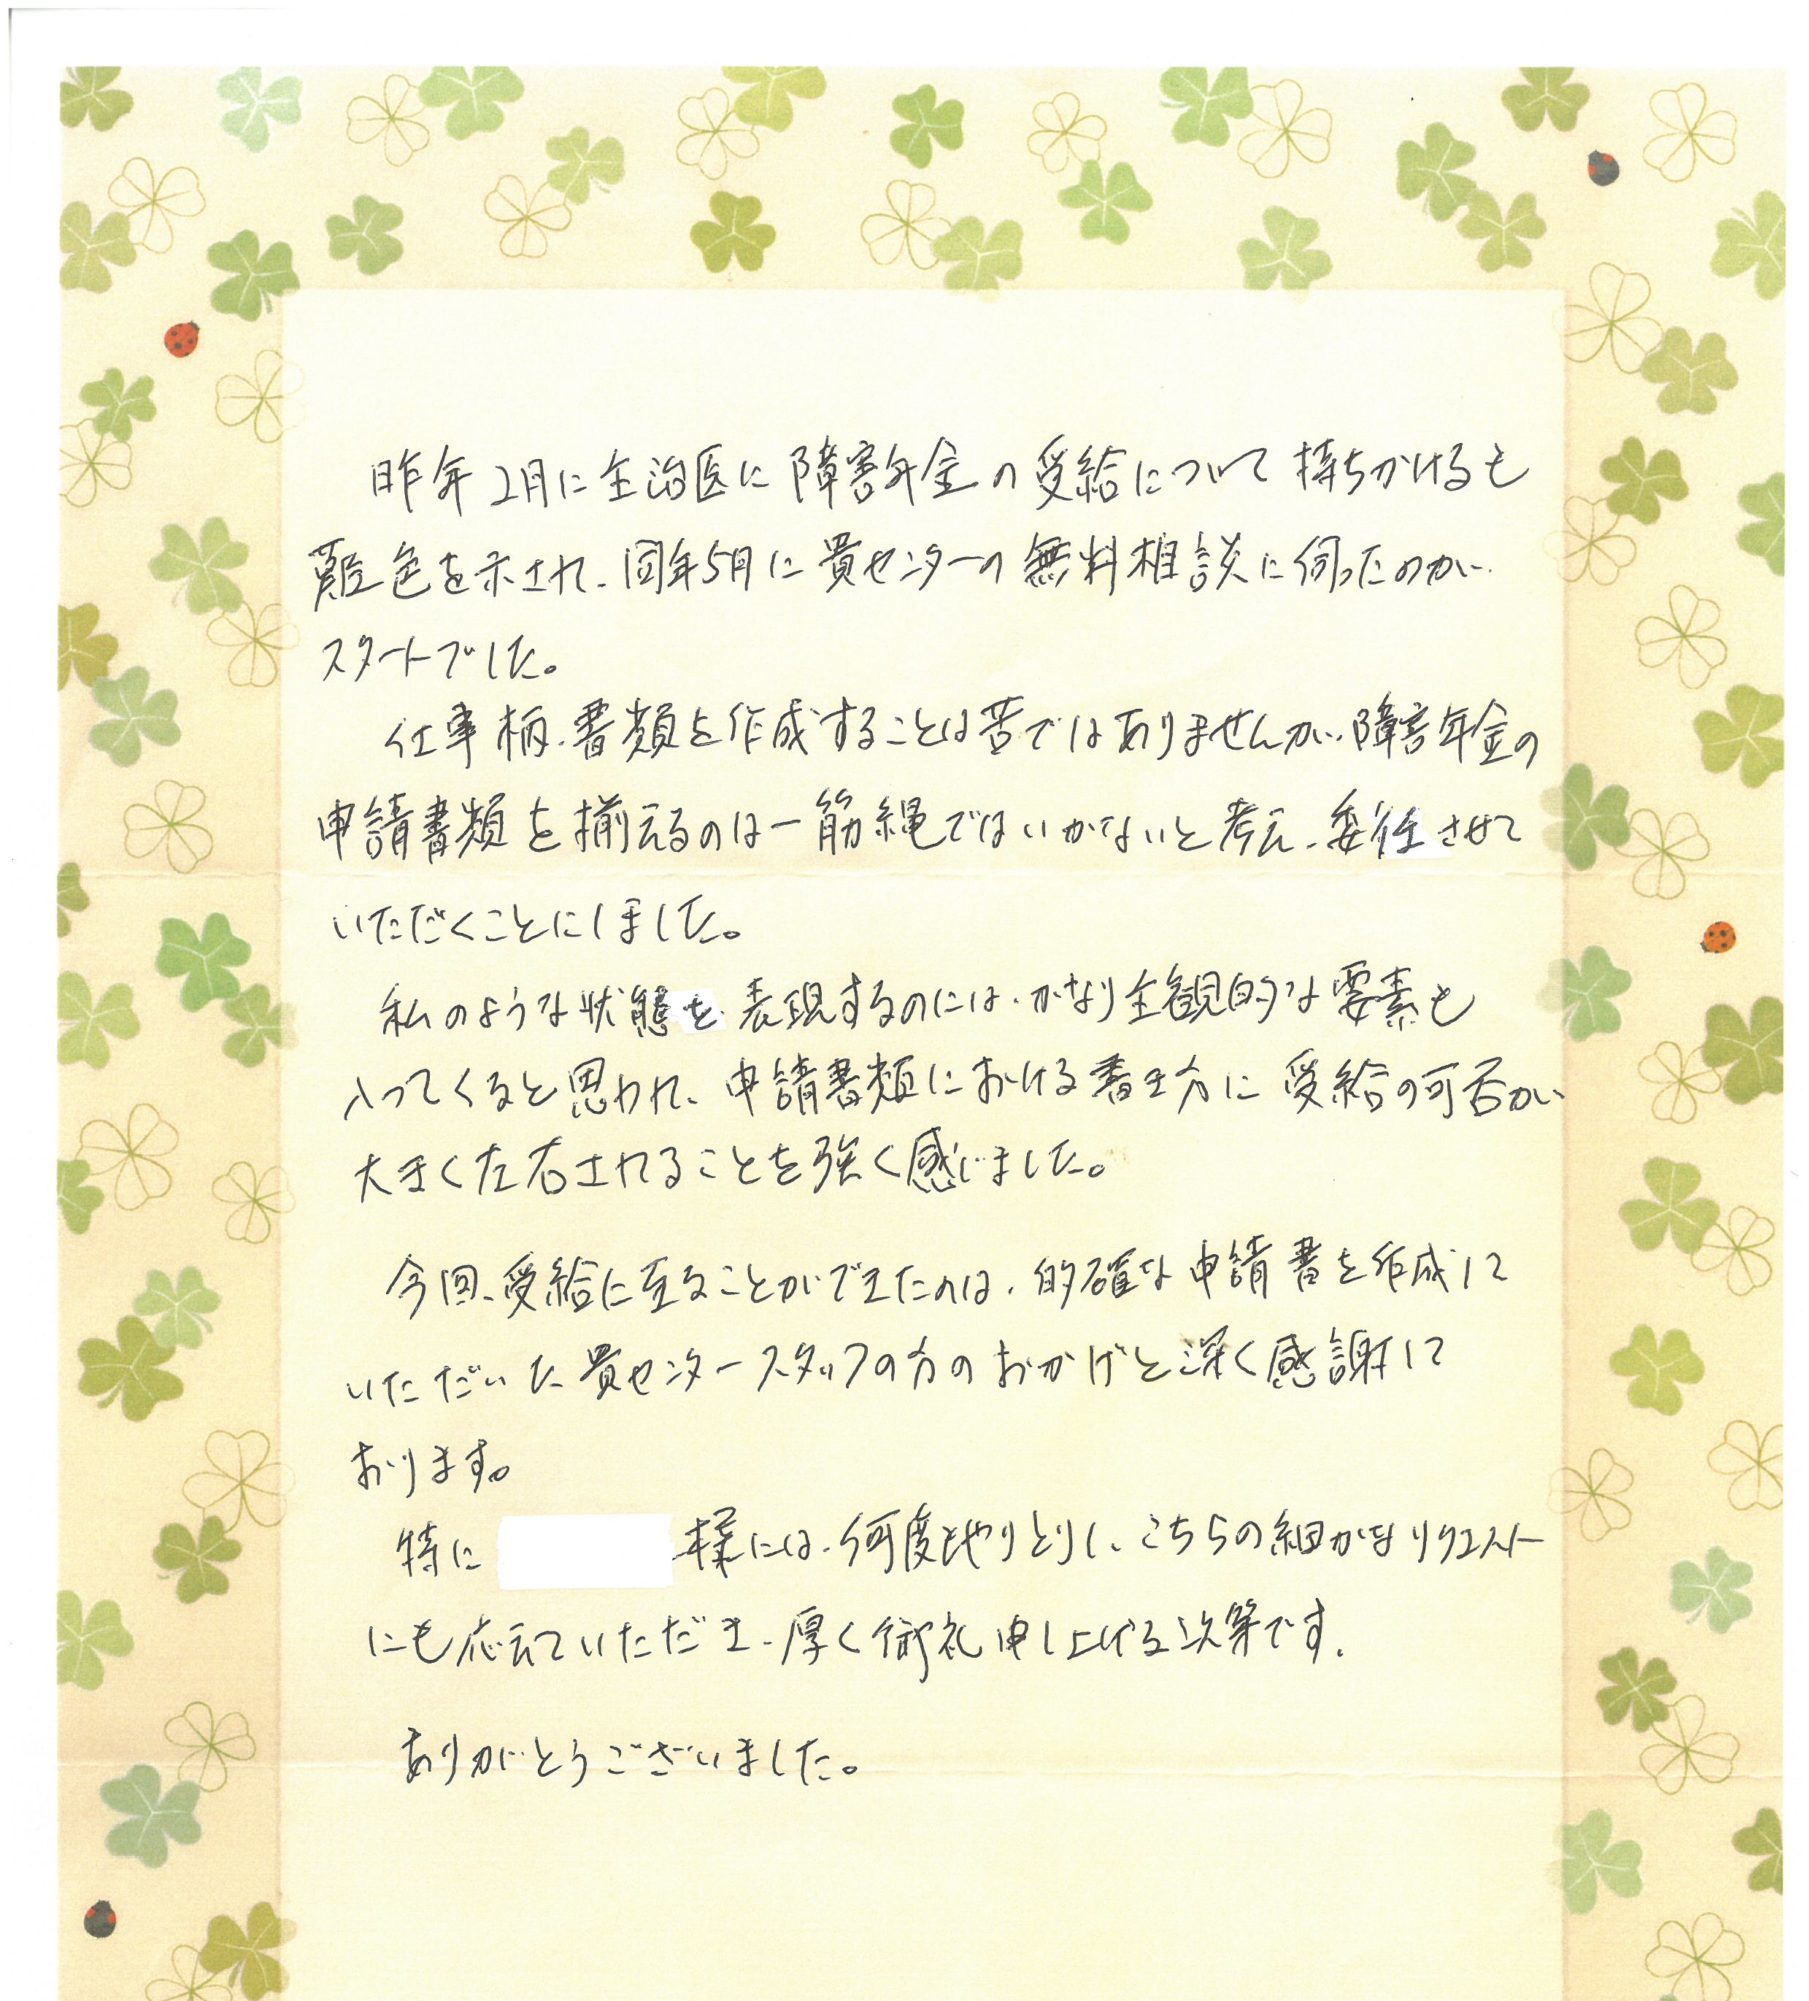 昨年2月に主治医に障害年金の受給について持ちかけるも
難色を示され、同年5月に貴センターの無料相談に伺ったのが、
スタートでした。
仕事柄、書類を作成することは苦ではありませんが、障害年金の
申請書類を揃えるのは一筋縄ではいかないと考え、委任させて
いただくことにしました。
私のような状態を表現するのには、かなり主観的な要素も
入ってくると思われ、申請書類における書き方に受給の可否が
大きく左右されることを強く感じました。
今回、受給に至ることができたのは、的確な申請書を作成して
いただいた貴センタースタッフの方のおかげと深く感謝して
おります。
特に 様には、何度もやりとりし、こちらの細かなリクエスト
にも応えていただき、厚く御礼申し上げる次第です。
ありがとうございました。